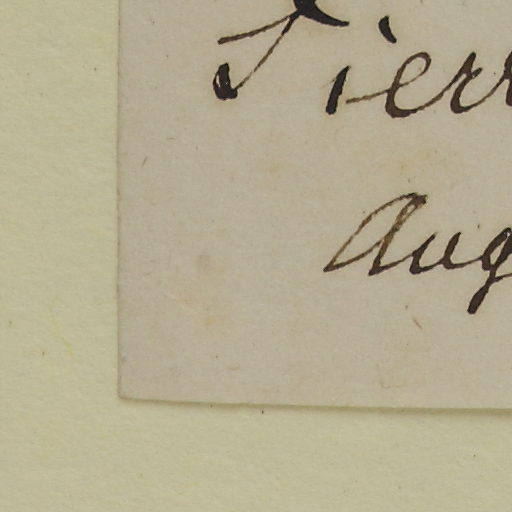 Tierr
Aug